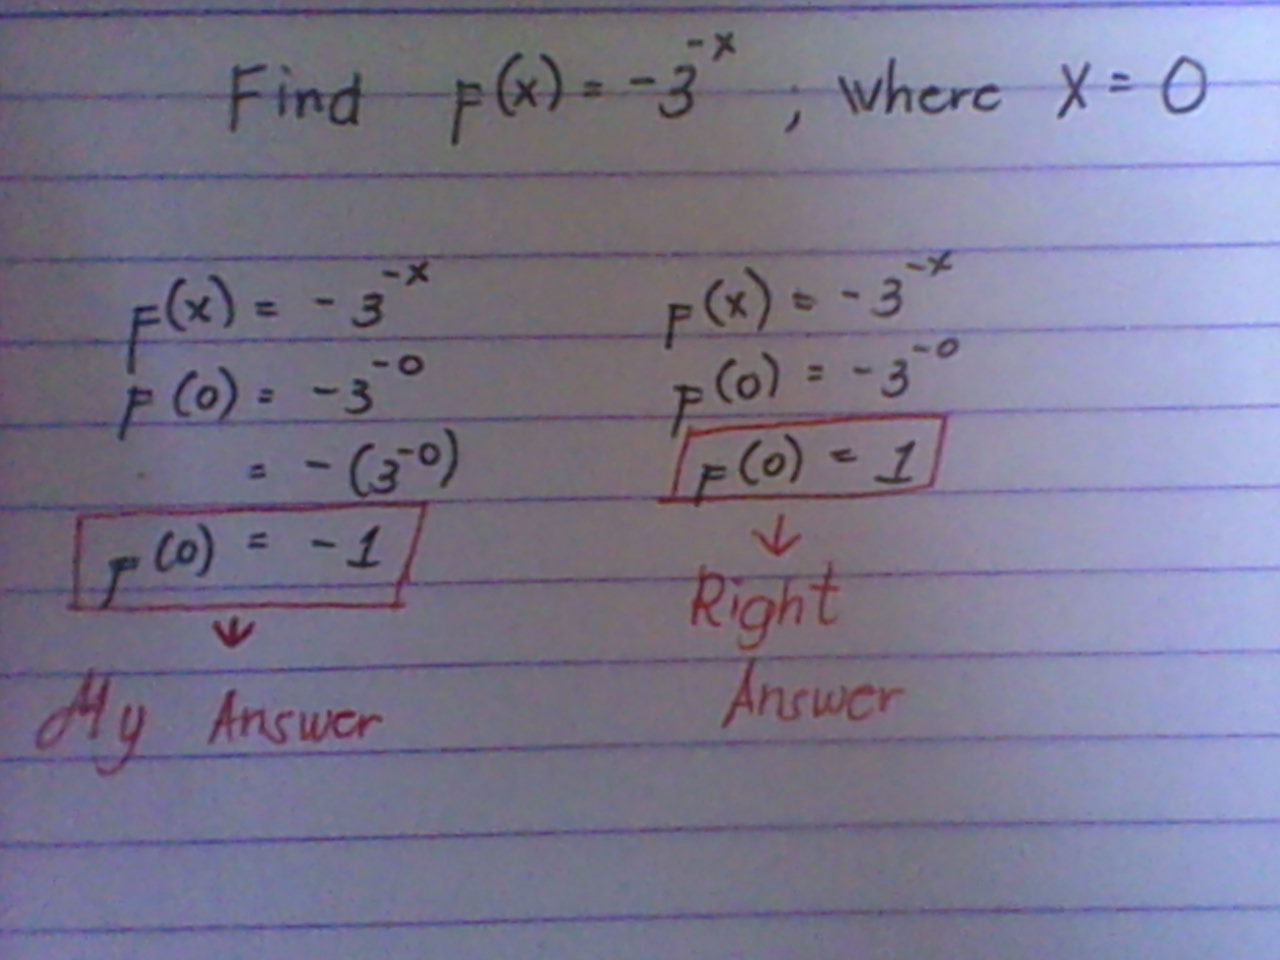 Find F(x) = -3^-x ; where x = 0
F(x) = -3^-x
F(0) = -3^-0
= -(3^-0)
F(0) = -1
My Answer
F(x) = -3^-x
F(0) = -3^-0
F(0) = 1
Right
Answer